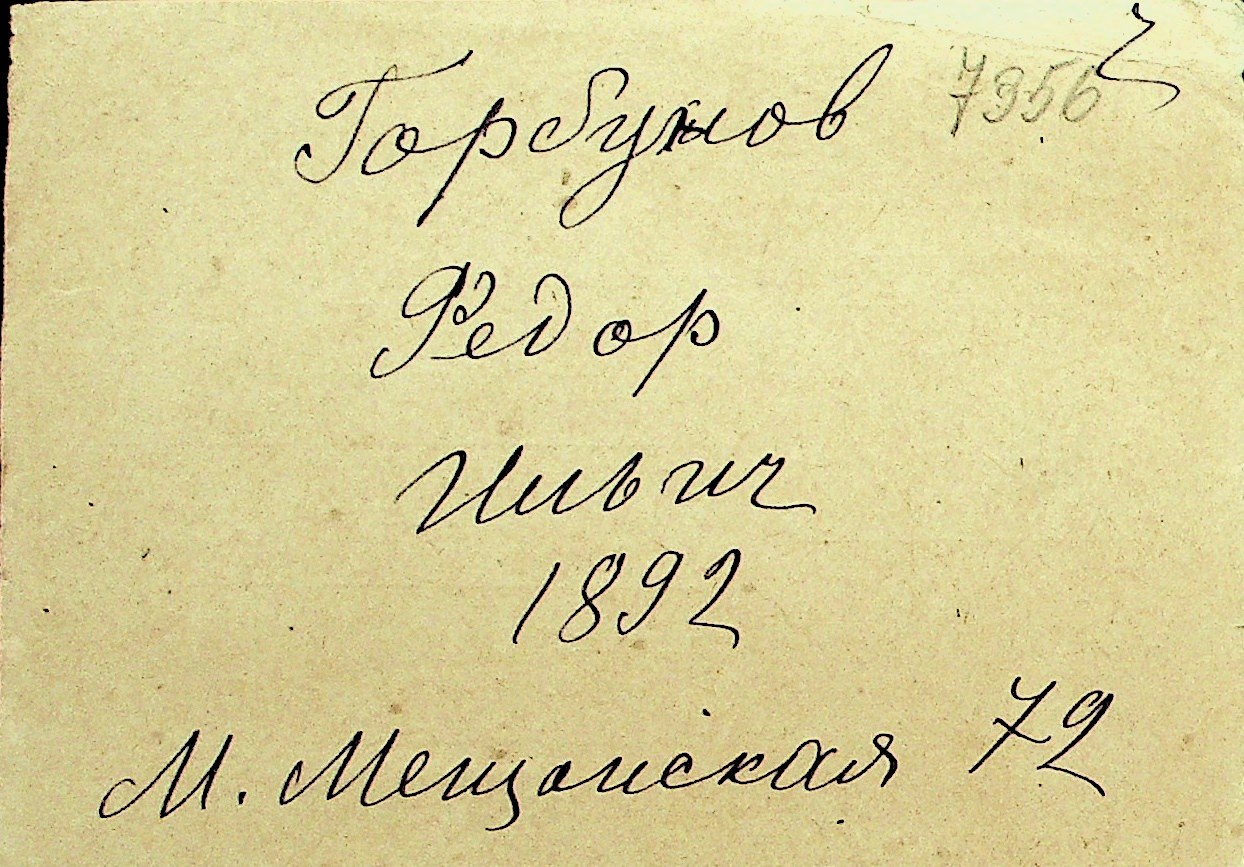 Горбунов 7356
Федор
Ильич
1892
М. Мещанская 72